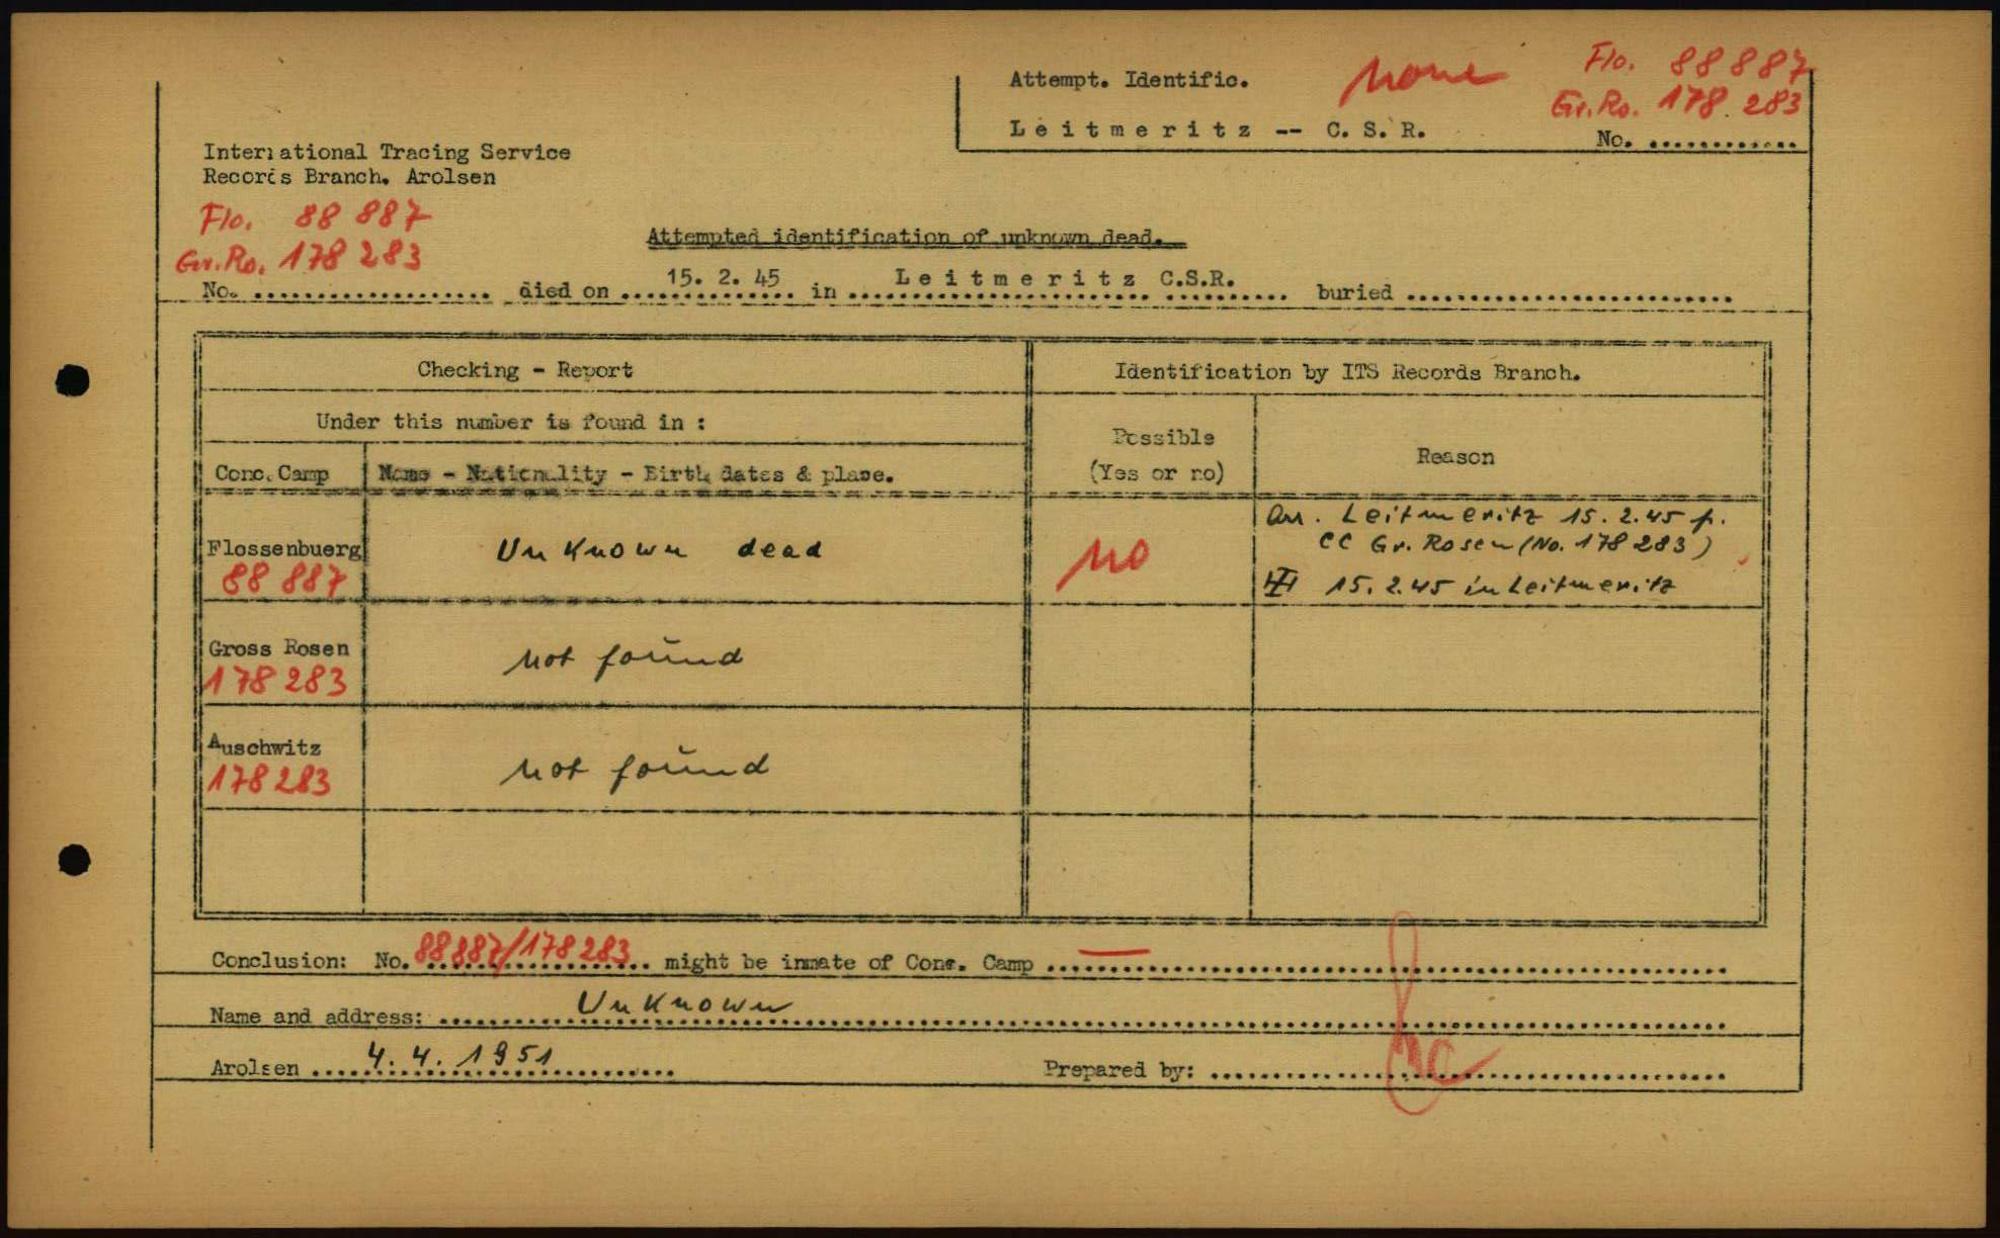 Attempt. Identific. none Flo. 88887
Gr.Ro. 178 283
Leitmeritz -- C. S. R.
No. ............
International Tracing Service
Records Branch. Arolsen
Flo. 88 887
Gr.Ro. 178 283
Attempted identification of unknown dead.
No. .................. died on 15. 2. 45 in Leitmeritz C.S.R. buried .........................
Checking - Report
Identification by ITS Records Branch.
Under this number is found in :
Possible
(Yes or no)
Reason
Conc. Camp
Name - Nationality - Birth dates & place.
Flossenbuerg
88 887
Unknown dead
no
Arr. Leitmeritz 15. 2. 45 f.
CC Gr. Rosen (No. 178 283)
15. 2. 45 in Leitmeritz
Gross Rosen
178 283
not found
Auschwitz
178 283
not found
Conclusion: No. 88887/178 283 might be inmate of Conc. Camp —
Name and address: Unknown
Arolsen 4. 4. 1951
Prepared by: